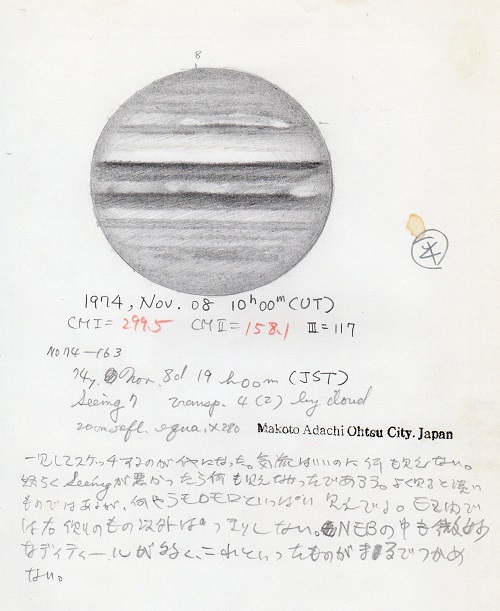 8
1974, Nov. 08 10h00m (UT)
CMI = 299.5 CMII = 158.1 III = 117
No74-163
74y. Nov. 8d 19h00m (JST)
Seeing 7 transp. 4 (2) by cloud
20cm refl. equa. ×280 Makoto Adachi Ohtsu City. Japan
一見してスケッチするのが になった。気流はいいのに何も見えない。
Seeingが悪かったら何も見えなかったであろう。よく見ると淡い
ものではあるが、何やらモロモロといっぱい見えてる。EZ内で
は右側のもの以外はっきりしない。NEBの中も微妙
なディティールが多く、これといったものがまるでつかめ
ない。